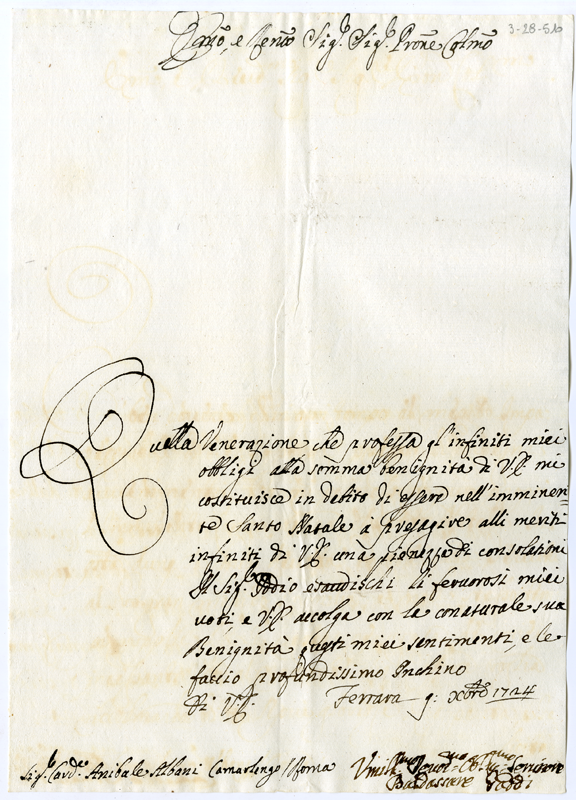 3-28-510
Emo, e Revmo Sig.r Sig.r Prone Colmo
Quella Venerazione che professa gl'infiniti miei
obbligi alla somma benignità di V.E. mi
costituisce in debito di essere nell'imminen-
te Santo Natale à presagire alli meriti
infiniti di V.E. una pienezza di consolationi
Il Sig.re Iddio esaudischi li fervorosi miei
voti e V.E. accolga con la conaturale sua
Benignità questi miei sentimenti, e le
faccio profondissimo Inchino
di V.E. Ferrara 9: Xbre 1724
Sig.r Card.e Anibale Albani Camarlengo Roma
Umilmo Devotmo Obligmo Servitore
Baldassare